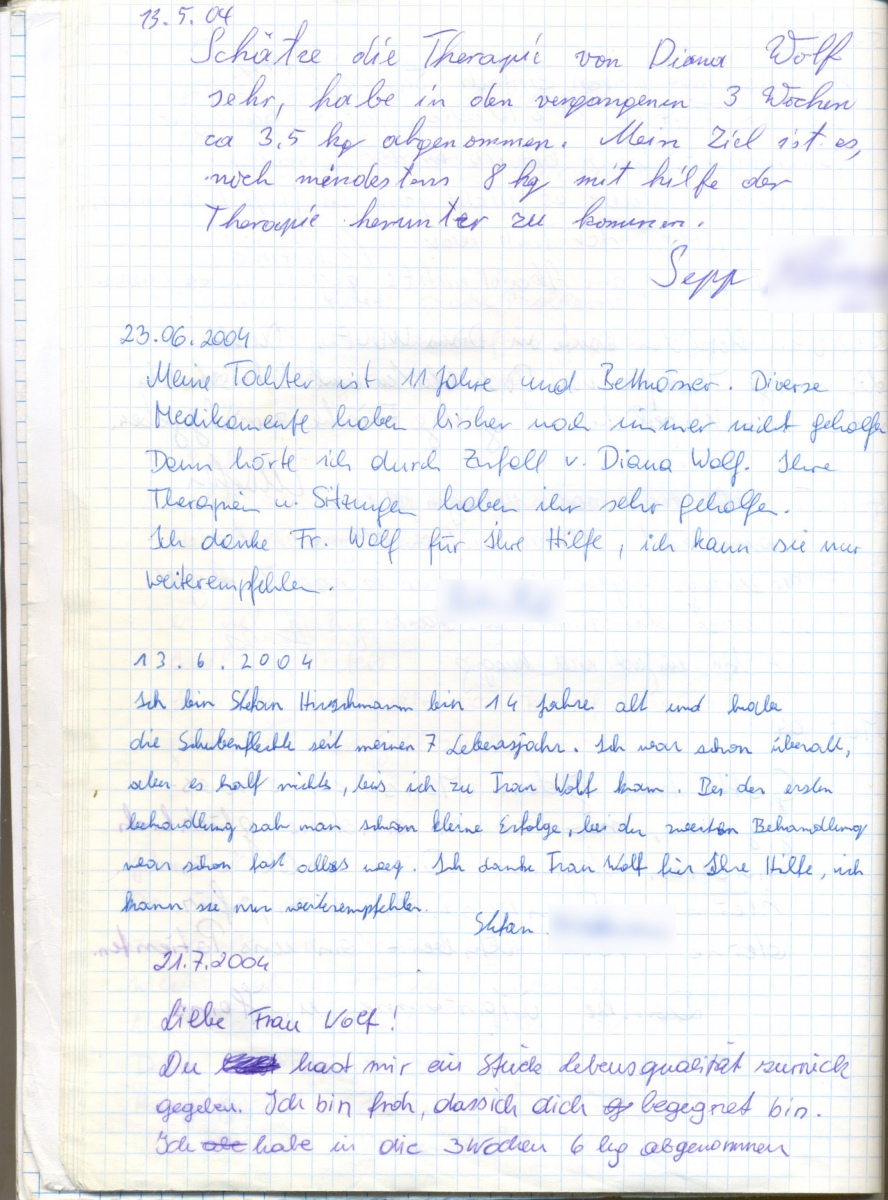 13.5.04
Schätze die Therapie von Diana Wolf
sehr, habe in den vergangenen 3 Wochen
ca 3,5 kg abgenommen. Mein Ziel ist es,
noch mindestens 8 kg mit hilfe der
Therapie herunter zu kommen.
Sepp
23.06.2004
Meine Tochter ist 11 Jahre und Bettnässer. Diverse
Medikamente haben bisher noch immer nicht geholfen
Dann hörte ich durch Zufall v. Diana Wolf. Ihre
Therapien u. Sitzungen haben ihr sehr geholfen.
Ich danke Fr. Wolf für Ihre Hilfe, ich kann sie nur
weiterempfehlen.
13.6.2004
Ich bin Stefan Hirschmann bin 14 Jahre alt und habe
die Schubenflechte seit meinen 7 Lebensjahr. Ich war schon überall,
aber es half nichts, bis ich zu Frau Wolf kam. Bei der ersten
behandlung sah man schon kleine Erfolge, bei der zweiten Behandlung
war schon fast alles weg. Ich danke Frau Wolf für Ihre Hilfe, ich
kann sie nur weiterempfehlen.
Stefan
21.7.2004
Liebe Frau Wolf!
Du hast mir ein Stück Lebensqualität zurück
gegeben. Ich bin froh, dass ich dich begegnet bin.
Ich habe in die 3 Wochen 6 kg abgenommen